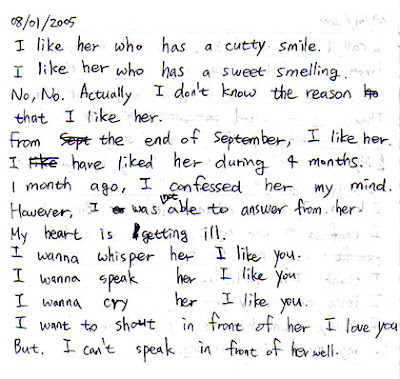 08/01/2005
I like her who has a cutty smile.
I like her who has a sweet smelling.
No, No. Actually I don't know the reason
that I like her.
from Sept the end of September, I like her.
I like have liked her during 4 months.
1 month ago, I confessed her my mind.
However, I was not able to answer from her.
My heart is getting ill.
I wanna whisper her I like you.
I wanna speak her I like you
I wanna cry her I like you.
I want to shout in front of her I love you
But. I can't speak in front of her well.